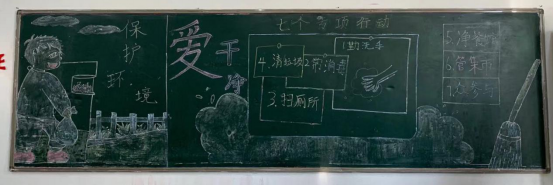 保护
环境
爱干净
七个专项行动
1勤洗手
2常消毒
3.扫厕所
4.清垃圾
5净餐馆
6管集市
7众参与